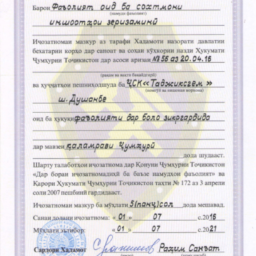 Барои Фаъолият оид ба сохтмони
иншоотҳои зеризаминӣ
Иҷозатномаи мазкур аз тарафи Хадамоти назорати давлатии
бехатарии корҳо дар саноат ва соҳаи кӯҳкории назди Ҳукумати
Ҷумҳурии Тоҷикистон дар асоси аризаи №58 аз 20.04.18
ва ҳуҷҷатҳои пешниҳодшудаи ҶСК «Таджиксем»
ш. Душанбе
оид ба ҳуқуқи фаъолияти дар боло зикргардида
дар мавзеи қаламрави Ҷумҳурӣ
дода шудааст.
Шарту талаботҳои иҷозатнома дар Қонуни Ҷумҳурии Тоҷикистон
«Дар бораи иҷозатномадиҳӣ ба баъзе намудҳои фаъолият» ва
Қарори Ҳукумати Ҷумҳурии Тоҷикистон таҳти № 172 аз 3 апрели
соли 2007 пешбинӣ гардидааст.
Иҷозатномаи мазкур ба мӯҳлати 3(панҷ)сол дода мешавад.
Санаи додани иҷозатнома: «01» 07 2018
Мӯҳлати эътибор: «01» 07 2021
Сардори Хадамот Раҳим Санъат